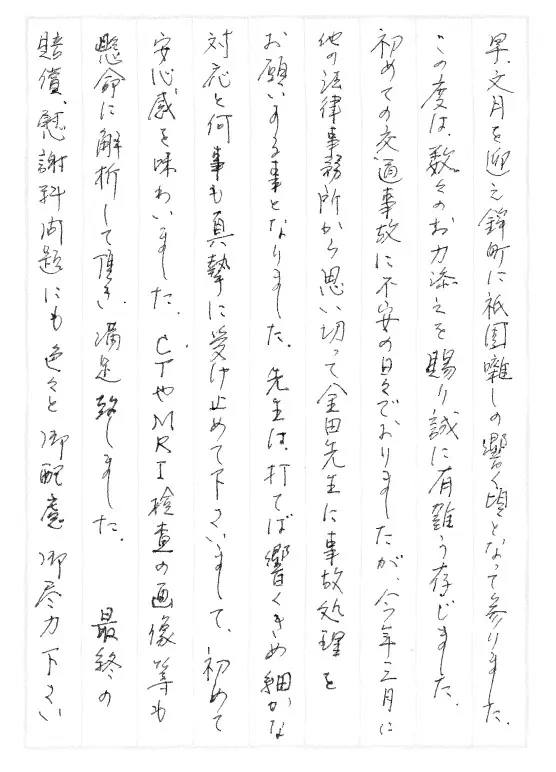 早、文月を迎え鉾町に祇園囃しの響く頃となって参りました。
この度は、数々のお力添えを賜り誠に有難う存じました。
初めての交通事故に不安の日々でおりましたが、今年三月に
他の法律事務所から思い切って金田先生に事故処理を
お願いする事となりました。先生は、打てば響くきめ細かな
対応と何事も真摯に受け止めて下さいまして、初めて
安心感を味わいました。CTやMRI検査の画像等も
懸命に解析して頂き、満足致しました。 最終の
賠償、慰謝料問題にも色々と御配慮御尽力下さい